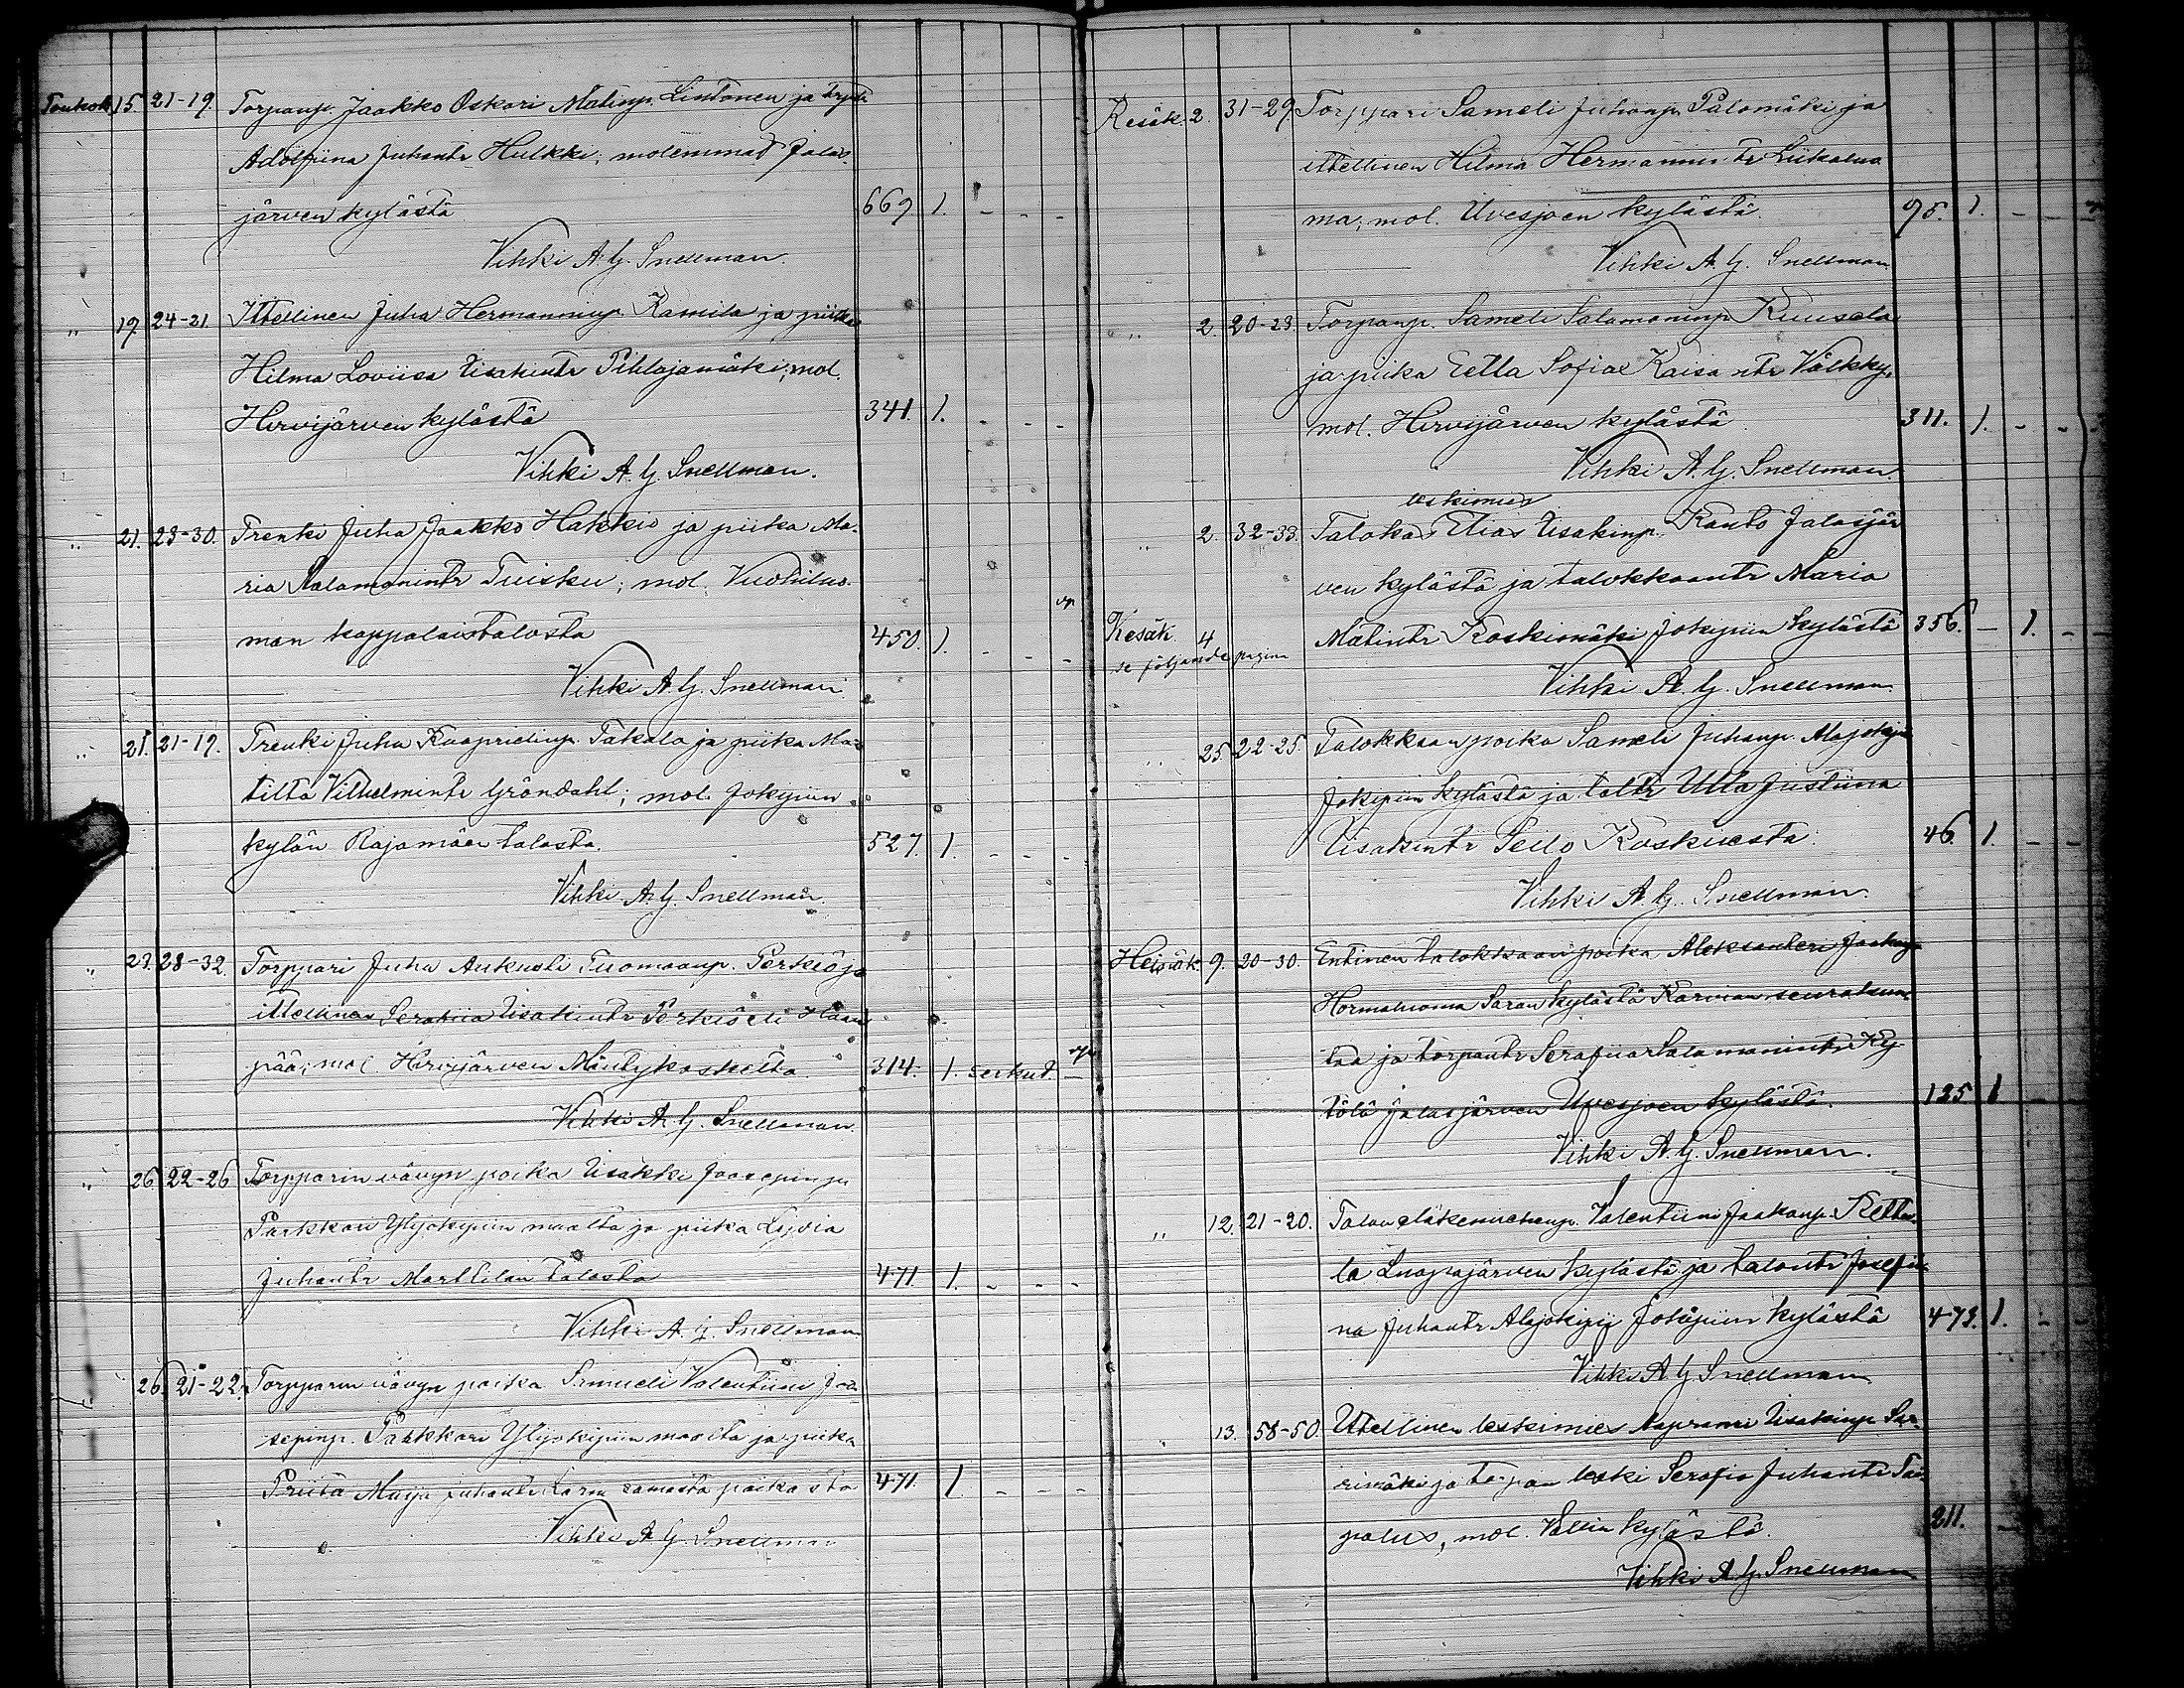 Toukok. 15. 21-19. Torpanp. Jaakko Oskari Matinp. Lintanen ja torpt
Adolfiina Juhantr Hulkki, molemmat Jalas-
järven kylästä 669 1. - - - -
Vihki A. G. Snellman.
" 19. 24-21. Ittellinen Juha Hermanninp. Kamila ja piika
Hilma Loviisa Iisakintr Pihlajamäki; mol.
Hirvijärven kylästä 341. 1. - - -
Vihki A. G. Snellman.
" 21. 23-30. Trenki Juha Jaakko Hakkio ja piika Ma-
ria Salamonintr Tuisku; mol.
man kappalaistalosta 450. 1. - - -
Vihki A. G. Snellman
" 21. 21-19. Trenki Juha Kaaprielinp. Takala ja piika Ma-
tilta Vilhelmintr Gröndahl; mol. Jokipiin
kylän Rajamäen talosta. 527. 1. - - - -
Vihki A. G. Snellman.
" 23. 28-32. Torppari Juha Aukusti Tuomaanp. Perkiö ja
ittellinen Serafiia Iisakintr Perkiö eli Haan
pää; mol. Hirvijärven Mäntykoskelta. 314. 1. serkut. -
Vihki A. G. Snellman
" 26. 22-26. Torpparin vävyn poika Iisakki Joosepinp.
Parkkari Ylijokipiin maalta ja piika Lyydia
Juhantr Marttilan talosta 471. 1. - - -
Vihki A. G. Snellman
" 26. 21-22. Torpparin vävyn poika Samueli Valentiini Joo-
sepinp. Parkkari Ylijokipiin maalta ja piika
Priita Maija Juhantr samasta paikasta 471. 1 - - -
Vihki A. G. Snellman
Kesäk. 2. 31-29. Torppari Sameli Juhanp. Palomäki ja
ittellinen Hilma Hermannintr Liikaluo
ma; mol. Uvesjoen kylästä. 95. 1. - -
Vihki A. G. Snellman
" 2. 20-23. Torpanp. Sameli Salamoninp Kuusela
ja piika Eetla Sofia Kaisantr Välkky,
mol. Hirvijärven kylästä. 311. 1. - - -
Vihki A. G. Snellman.
leskimies
" 2. 32-33. Talokas Elias Iisakinp. Kanto Jalasjär
ven kylästä ja talokkaantr Maria
Kesäk. 4 Matintr Koskimäki Jokipiin kylästä 356. - 1. - -
se följande pagina
Vihki A. G. Snellman.
" 25. 22-25. Talokkaan poika Sameli Juhanp. Alajokipii
Jokipiin kylästä ja taltr Ulla Justiina
Iisakintr Koskuesta. 46. 1. - -
Vihki A. G. Snellman.
Heinäk. 9. 20-30. Entinen talokkaan poika Aleksanteri Jaakonp.
Hormaluoma Saran kylästä Karvian seurakun
taa ja torpantr Serafiia Salamonintr Ky
tölä Jalasjärven Uvesjoen kylästä. 125 1
Vihki A. G. Snellman.
" 12. 21-20. Talon eläkemiehenp. Valentiini Jaakonp. Kettu
la Luopajärven kylästä ja talontr Josefii
na Juhantr Alajokipii Jokipiin kylästä 473. 1. - -
Vihki A. G. Snellman
" 13. 58-50. Ittellinen leskimies Aaprami Iisakinp. Saa-
rimäki ja torpan leski Serafia Juhantr Tai
palus, mol. Vallin kylästä. 211. -
Vihki A. G. Snellman